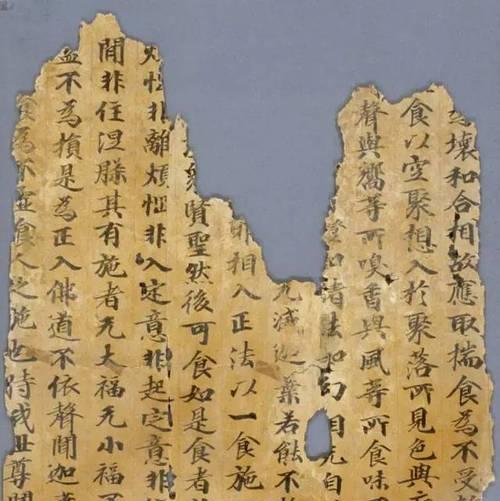 壞和合相故應取揣食為不受
食以空聚想入於聚落所見色與
聲與嚮等所嗅香與風等所食味
知諸法如幻相无自
无滅迦葉若能不
邪相入正法以一食施
衆賢聖然後可食如是食者
惱非離煩惱非入定意非起定意非
間非住涅槃其有施者无大福无小福
益不為損是為正入佛道不依聲聞迦
食為不空食人之施也時我世尊聞